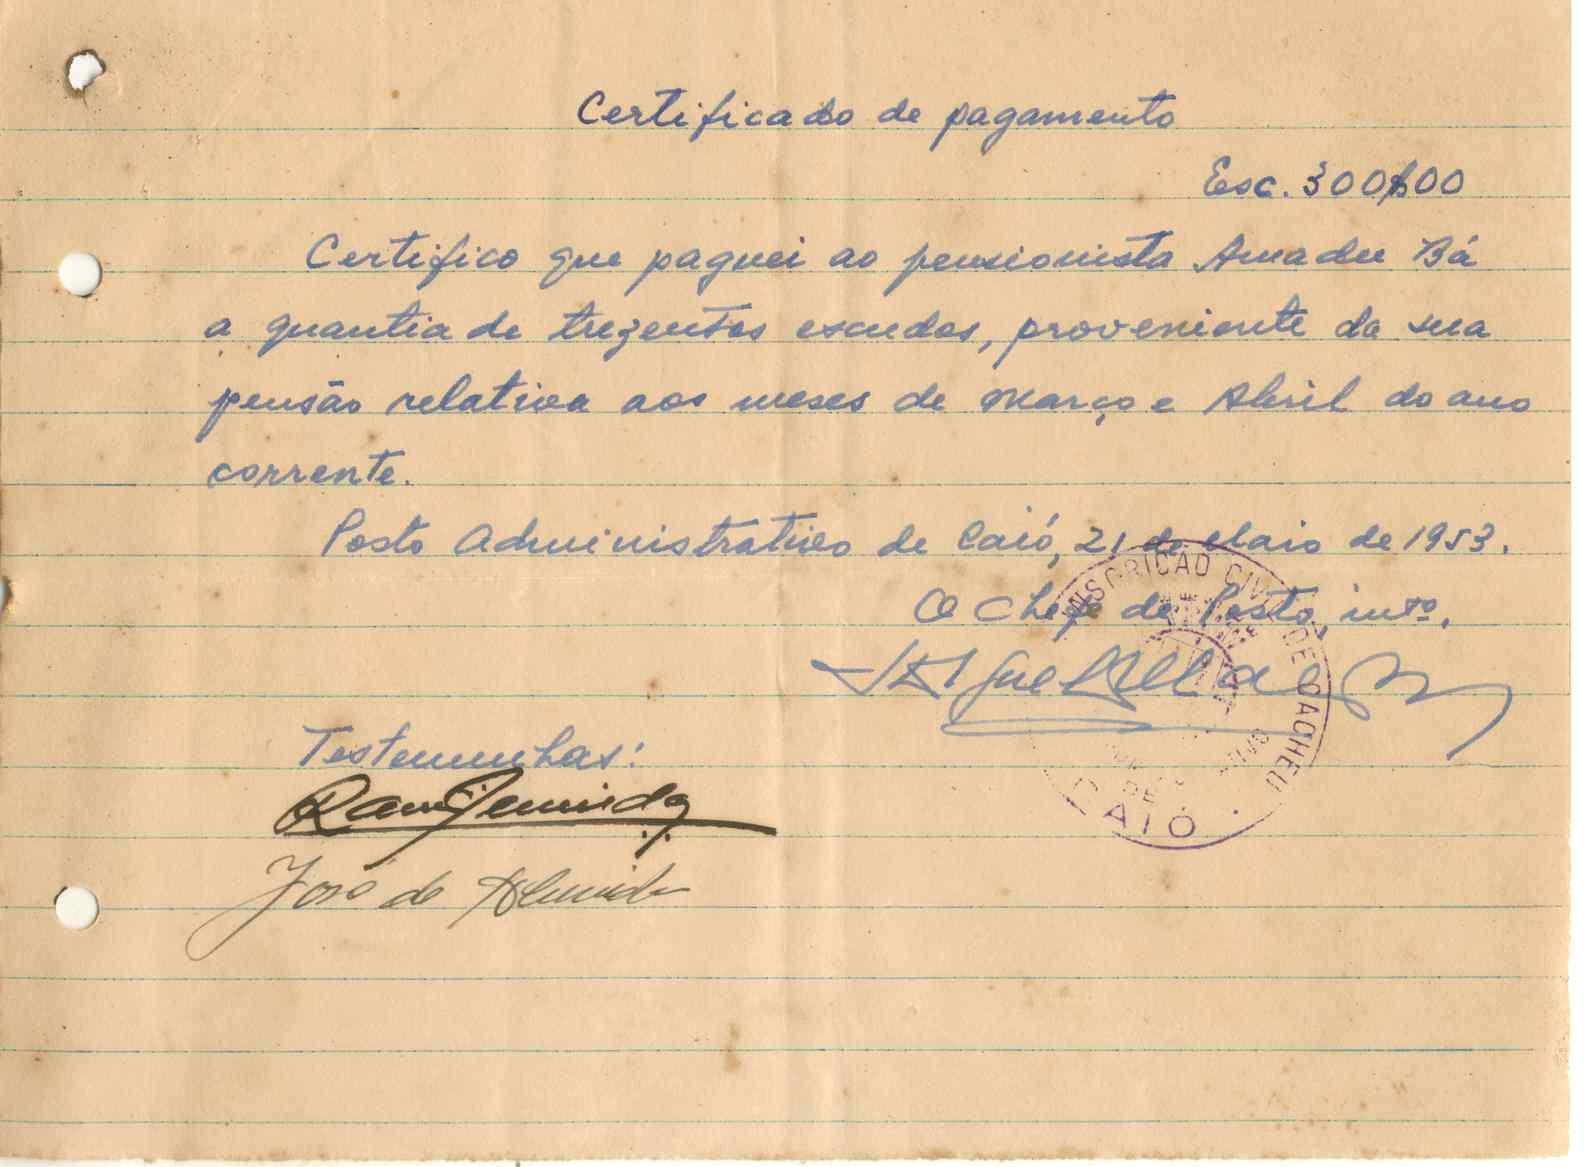 Certificado de pagamento
Esc. 300$00
Certifico que paguei ao pensionista Amadu Bá
a quantia de trezentos escudos, proveniente da sua
pensão relativa aos meses de Março e Abril do ano
corrente.
Posto Administrativo de Caió, 21 de Maio de 1953.
O Chefe de Posto, intº.
Testemunhas:
José de Almeida
NSCRICÃO CIVIL DE CACHEU
CAIÓ